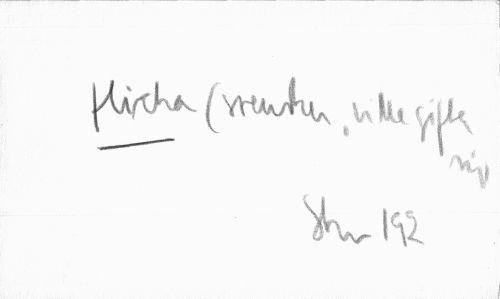 Flicka (svensken, ville gifta
sig
192